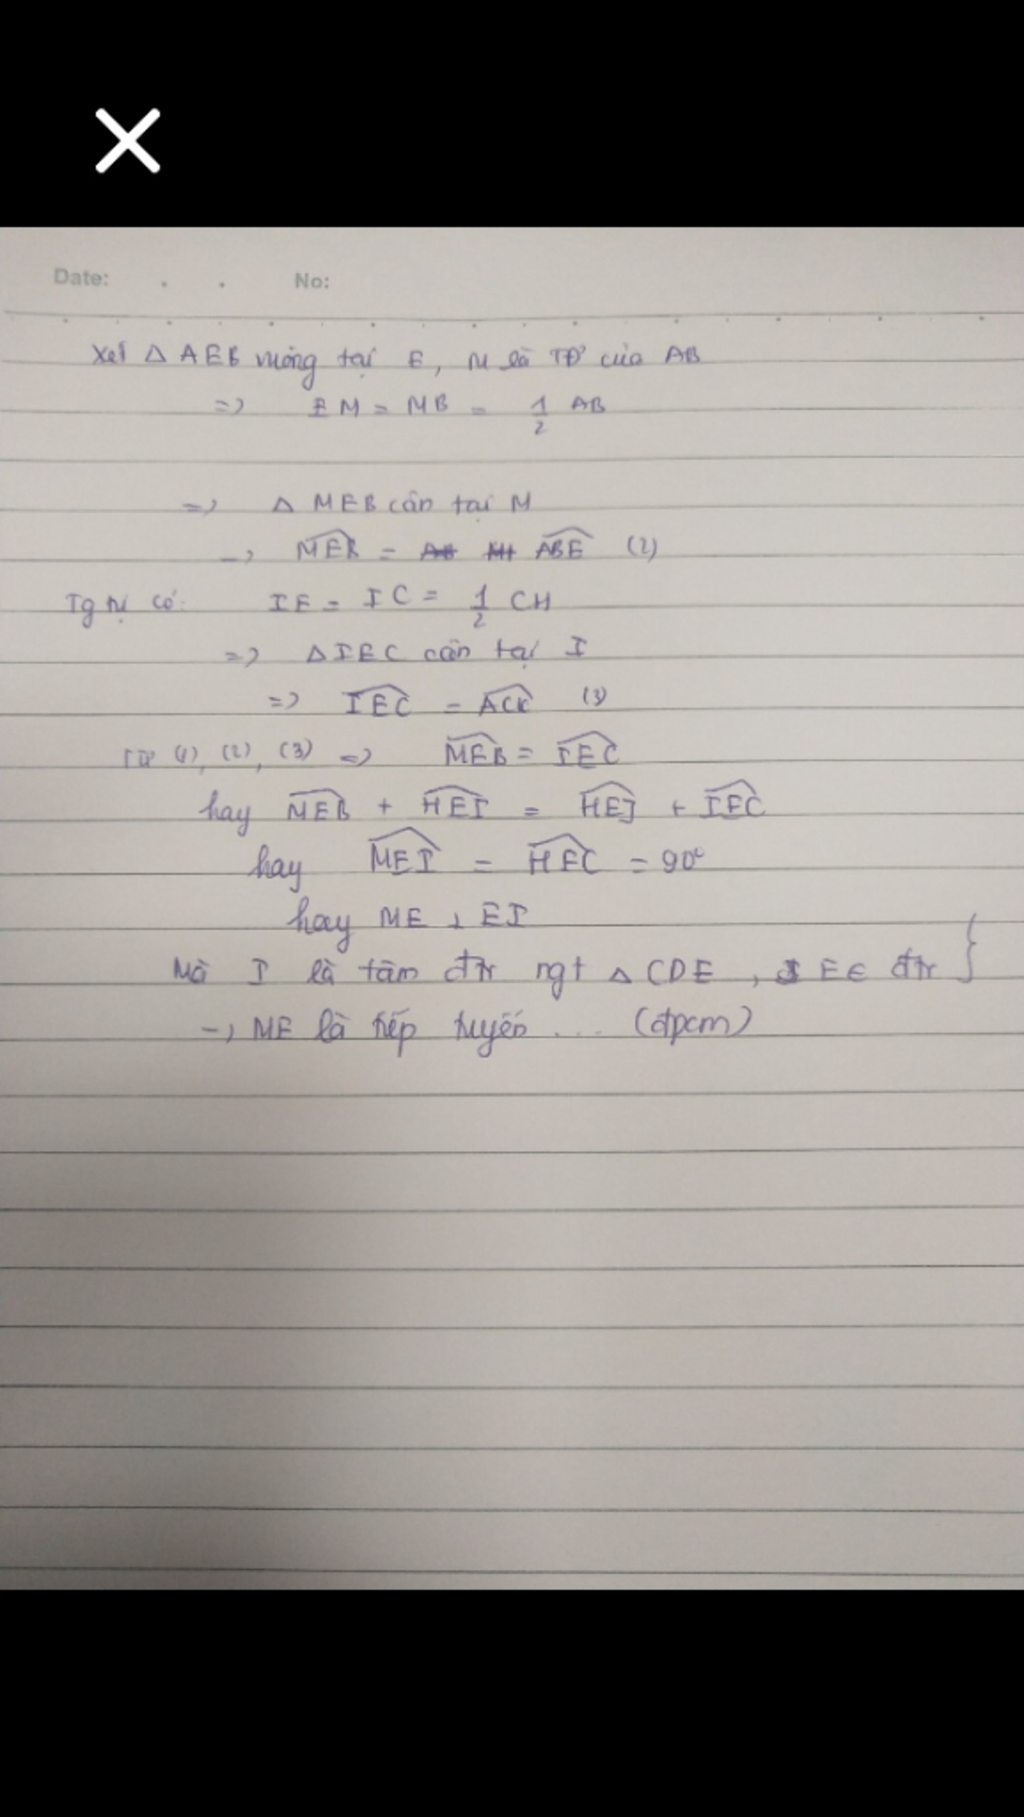 Date: . . No:
Xét △ AEB vuông tại E, M là TĐ của AB
=> EM = MB = 1/2 AB
=> △ MEB cân tại M
-> MEB = ABE (2)
Tg tự có: IE = IC = 1/2 CH
=> △IEC cân tại I
=> IEC = ACK (3)
Từ (1), (2), (3) => MEB = IEC
hay MEB + HEI = HEI + IEC
hay MEI = HEC = 90°
hay ME ⊥ EI
Mà I là tâm đtr ngt △ CDE, E ∈ đtr }
-> ME là tiếp tuyến ... (đpcm)